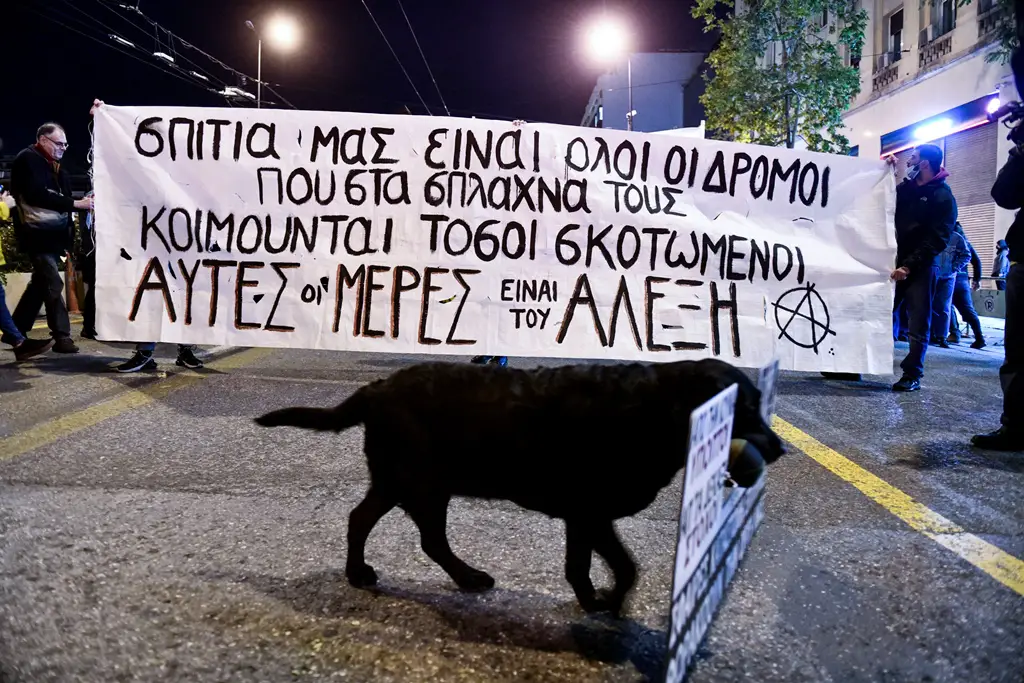 σΠΙΤΙΑ ΜΑΣ ΕΙΝΑΙ ΟΛΟΙ ΟΙ ΔΡΟΜΟΙ
ΠΟΥ σΤΑ σΠΛΑΧΝΑ ΤΟΥΣ
ΚΟΙΜΟΥΝΤΑΙ ΤΟσΟΙ σΚΟΤΩΜΕΝΟΙ
ΑΥΤΕΣ οι ΜΕΡΕΣ ΕΙΝΑΙ ΤΟΥ ΑΛΕΞΗ